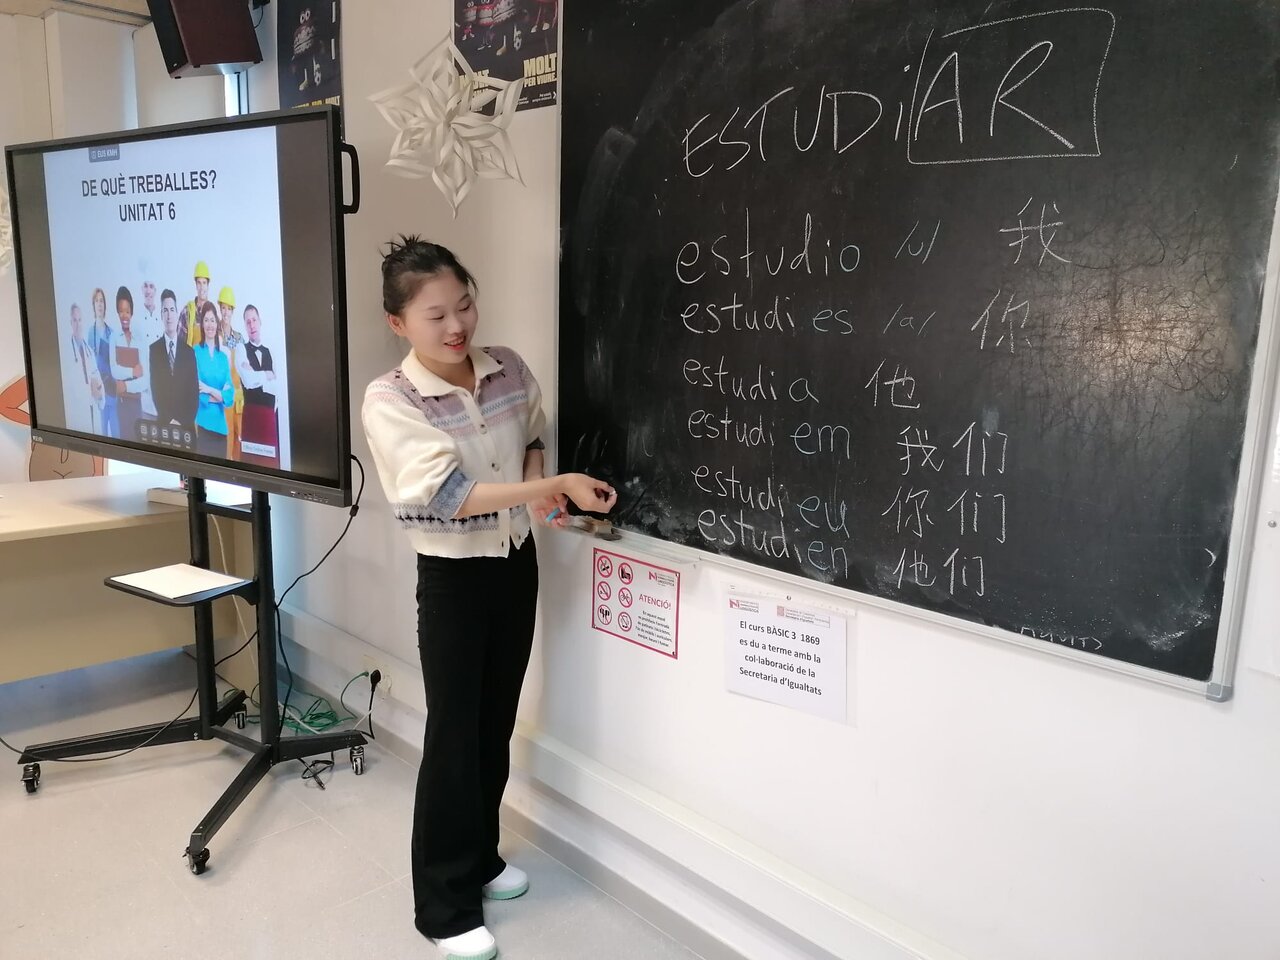 DE QUÈ TREBALLES?
UNITAT 6
MOLT
PER VIURE.
ESTUDiAR
estudio /u/ 我
estudies /a/ 你
estudia 他
estudiem 我们
estudieu 你们
estudien 他们
ATENCIÓ!
El curs BÀSIC 3 1869
es du a terme amb la
col·laboració de la
Secretaria d'Igualtats